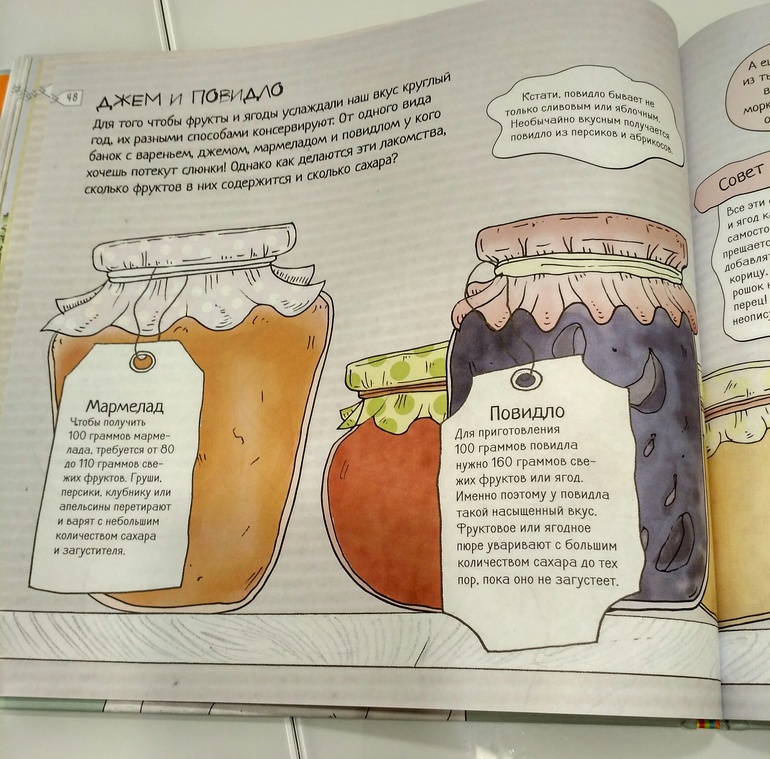 48
ДЖЕМ И ПОВИДЛО
Для того чтобы фрукты и ягоды услаждали наш вкус круглый
год, их разными способами консервируют. От одного вида
банок с вареньем, джемом, мармеладом и повидлом у кого
хочешь потекут слюнки! Однако как делаются эти лакомства,
сколько фруктов в них содержится и сколько сахара?
Кстати, повидло бывает не
только сливовым или яблочным.
Необычайно вкусным получается
повидло из персиков и абрикосов.
Мармелад
Чтобы получить
100 граммов марме-
лада, требуется от 80
до 110 граммов све-
жих фруктов. Груши,
персики, клубнику или
апельсины перетирают
и варят с небольшим
количеством сахара
и загустителя.
Повидло
Для приготовления
100 граммов повидла
нужно 160 граммов све-
жих фруктов или ягод.
Именно поэтому у повидла
такой насыщенный вкус.
Фруктовое или ягодное
пюре уваривают с большим
количеством сахара до тех
пор, пока оно не загустеет.
А е
из ть
в
морк
о
Совет
Все эти
и ягод к
самосто
прещаетс
добавлят
корицу,
рошок н
перец!
неопису